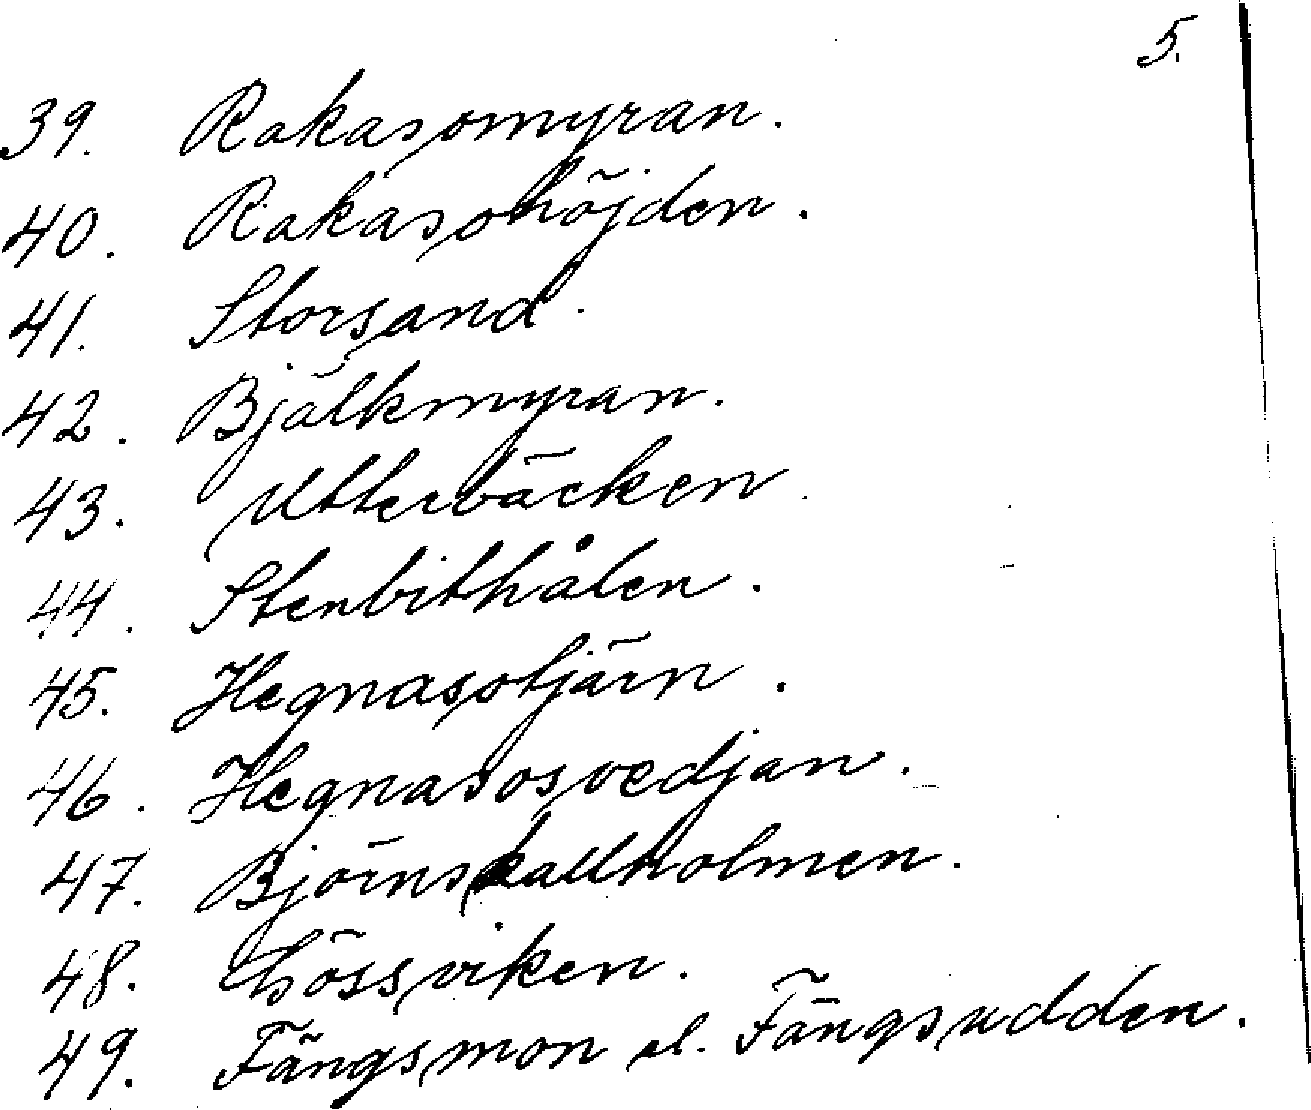 5.
39. Rakasomyran.
40. Rakasohöjden.
41. Storsand.
42. Bjälkmyran.
43. Utterbäcken.
44. Stenbithålen.
45. Hegnasotjärn.
46. Hegnasosvedjan.
47. Björnskallholmen.
48. Hössviken.
49. Fängsmon el. Fängsudden.